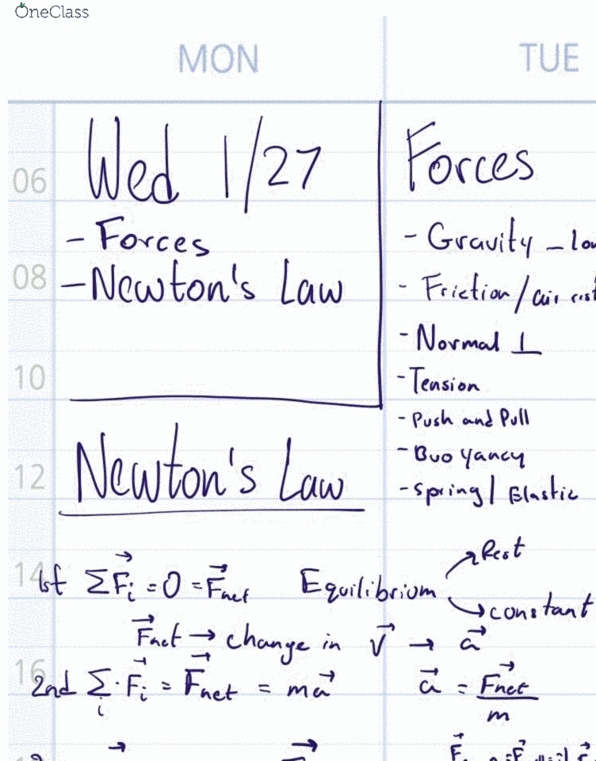 OneClass
MON
TUE
06
Wed 1/27
- Forces
08
- Newton's Law
10
Forces
- Gravity -
- Friction / air
- Normal ⊥
- Tension
- Push and Pull
- Buoyancy
- Spring / Elastic
12
Newton's Law
14
1st Σ F⃗i = 0 = F⃗net Equilibrium → Rest
→ constant
F⃗net → change in v⃗ → a⃗
16
2nd Σi F⃗i = F⃗net = ma⃗ a⃗ = F⃗net / m